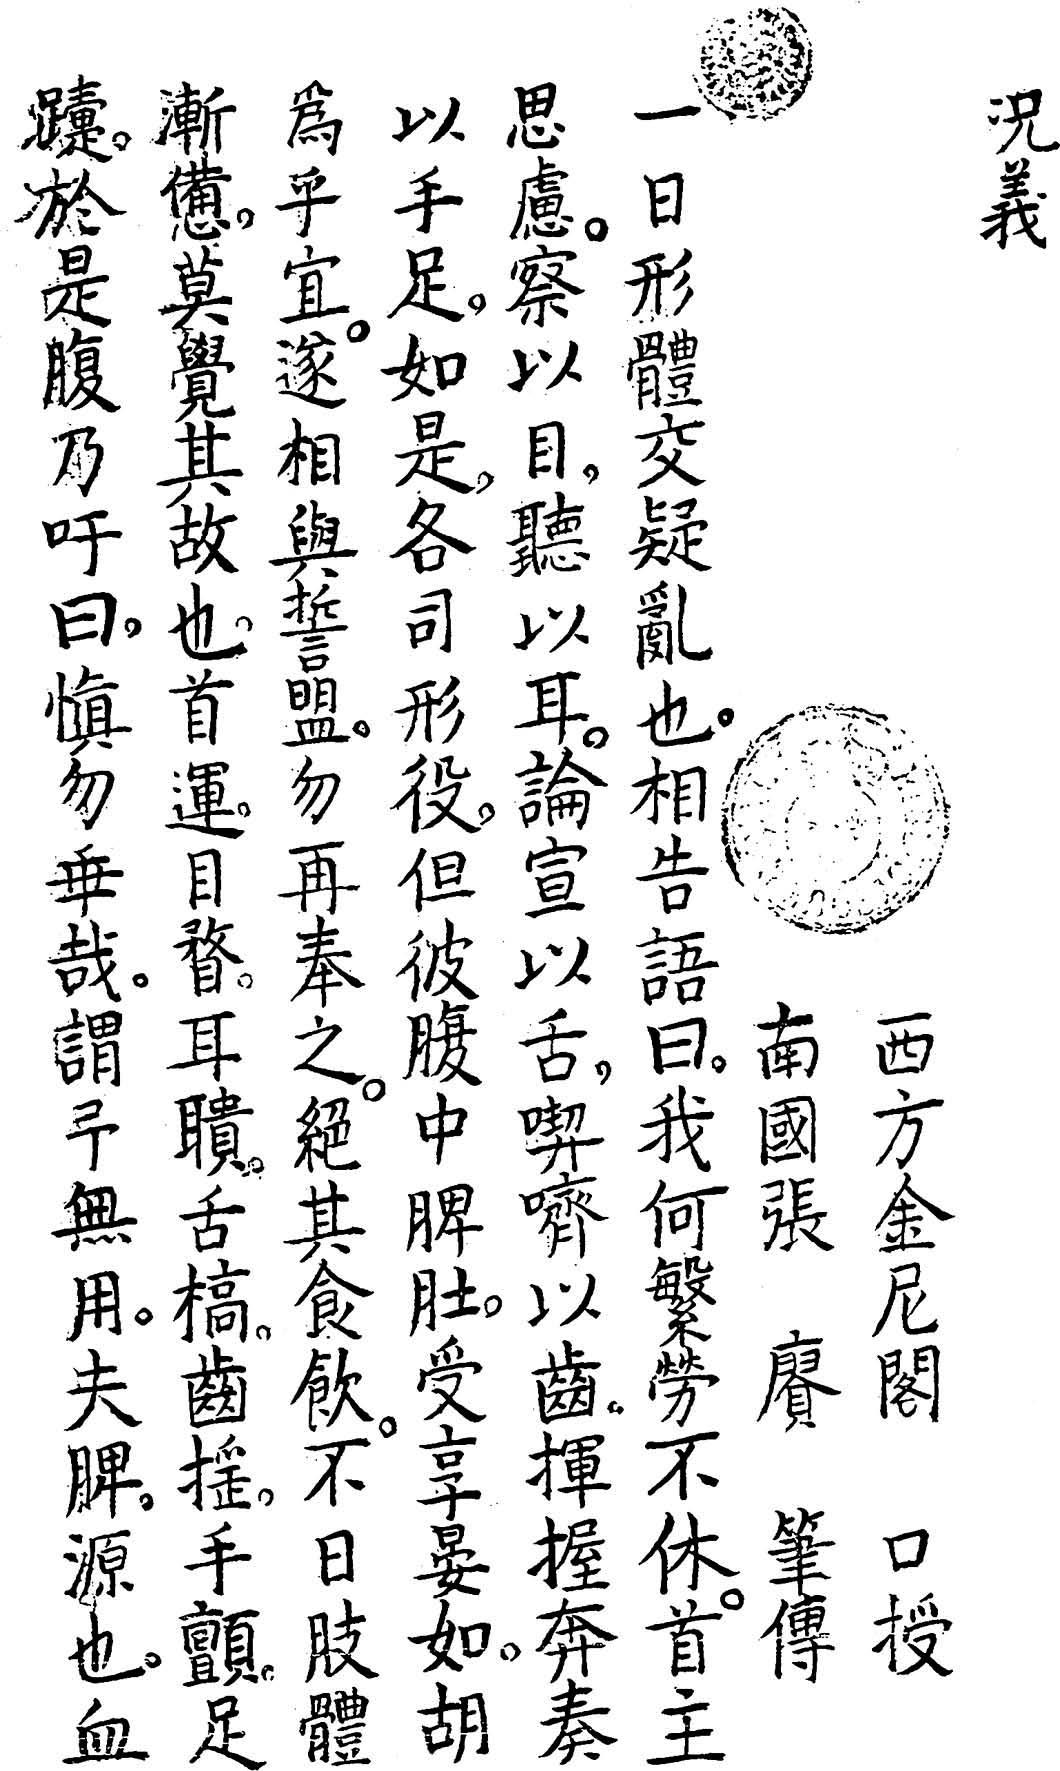 况義
西方金尼閣　口授
南國張　賡　筆傳
一日形體交疑亂也。相告語曰。我何繁勞不休。首主
思慮。察以目，聽以耳。論宣以舌，喫嚌以齒。揮握奔奏
以手足，如是，各司形役，但彼腹中脾肚。受享晏如。胡
為乎宜。遂相與誓盟。勿再奉之。絕其食飲。不日肢體
漸憊，莫覺其故也。首運。目瞀。耳聵。舌槁。齒搖。手顫。足
躄。於是腹乃吁曰，慎勿乖哉。謂予無用。夫脾，源也。血